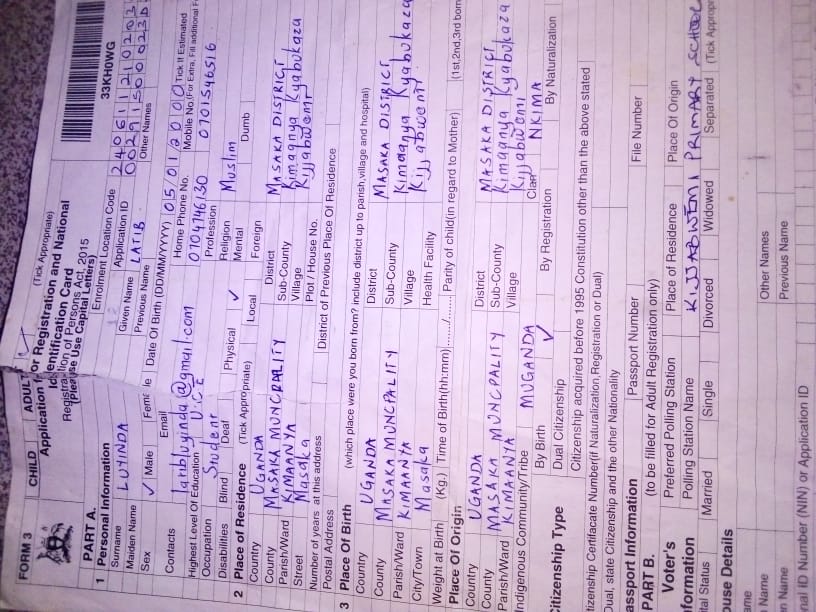 FORM 3 CHILD ADULT (Tick Appropriate)
Application for Registration and National
Identification Card
Registration of Persons Act, 2015
(Please Use Capital Letters)
33KH0WG
PART A.
1 Personal Information
Enrolment Location Code 2406112102
Surname LUYINDA Given Name LATIB Application ID
Maiden Name Previous Name Other Names
Sex ✓ Male Date Of Birth (DD/MM/YYYY) 05/01/2000 Tick If Estimated
Contacts Email latibluyinda@gmail.com Home Phone No. 0704746130 Mobile No.(For Extra, Fill additional 0701546516
Highest Level Of Education UCE Profession
Occupation Student Religion Muslim
Disabilities Blind Deaf Physical ✓ Mental Dumb
2 Place of Residence (Tick Appropriate) Local Foreign
Country UGANDA District MASAKA DISTRICT
County MASAKA MUNCPALITY Sub-County Kimaanya Kyabukaza
Parish/Ward KIMAANYA Village Kijjabwemi
Street Masaka Plot / House No.
Number of years at this address District of Previous Place Of Residence
Postal Address
3 Place Of Birth (which place were you born from? include district up to parish,village and hospital)
Country UGANDA District MASAKA DISTRICT
County MASAKA MUNCPALITY Sub-County Kimaanya Kyabukaza
Parish/Ward KIMAANYA Village Kijjabwemi
City/Town Masaka Health Facility
Weight at Birth (Kg.) Time of Birth(hh:mm) Parity of child(in regard to Mother) (1st,2nd,3rd born
Place Of Origin
Country UGANDA District MASAKA DISTRICT
County MASAKA MUNCPALITY Sub-County Kimaanya Kyabukaza
Parish/Ward KIMAANYA Village Kijjabwemi
Indigenous Community/Tribe MUGANDA Clan NKIMA
Citizenship Type By Birth ✓ By Registration By Naturalization
Dual Citizenship Citizenship acquired before 1995 Constitution other than the above stated
Citizenship Certifacate Number(if Naturalization,Registration or Dual)
Dual, state Citizenship and the other Nationality
Passport Information Passport Number File Number
PART B. (to be filled for Adult Registration only)
Voter's Preferred Polling Station Place of Residence Place Of Origin
Information Polling Station Name KIJJABWEMI PRIMARY SCHOOL
Marital Status Married Single Divorced Widowed Separated (Tick
Spouse Details
Name Other Names
Name Previous Name
National ID Number (NIN) or Application ID